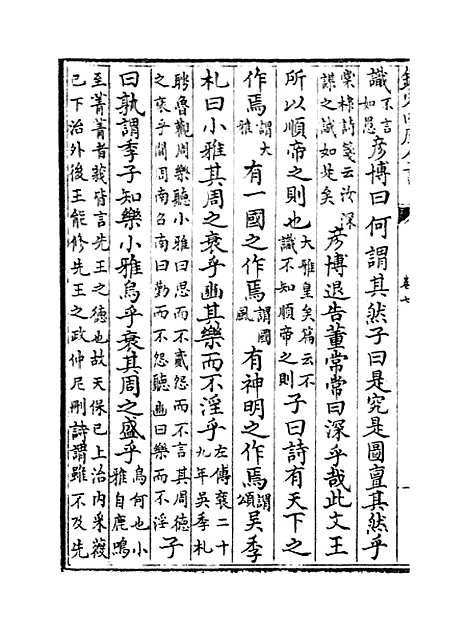 欽定四庫全書
卷七
識不言如愚彦博曰何謂其然子曰是究是圖亶其然乎
棠棣詩箋云汝深謀之誠如是矣彦博退告董常常曰深乎哉此文王
所以順帝之則也大雅皇矣篇云不識不知順帝之則子曰詩有天下之
作焉謂大雅有一國之作焉謂國風有神明之作焉謂頌吳季
札曰小雅其周之衰乎豳其樂而不淫乎左傳襄二十九年吳季札
聘魯觀周樂聽小雅曰思而不貳怨而不言其周德之衰乎聞周南召南曰勤而不怨聽豳曰樂而不淫子
曰孰謂季子知樂小雅烏乎衰其周之盛乎烏何也小雅自鹿鳴
至菁菁者莪皆言先王之德也故天保已上治内采薇已下治外後王能修先王之政仲尼刪詩謂雖不及先